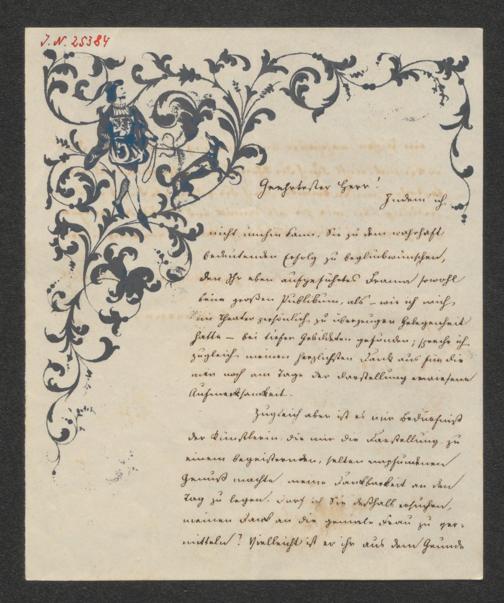 J. N. 25384
Geehrtester Herr!
Indem ich
nicht umhin kann, Sie zu dem wahrhaft
bedeutenden Erfolg zu beglückwünschen,
den Ihr eben aufgeführtes Drama sowohl
beim großen Publikum, als – wie ich mich,
im Theater persönlich zu überzeugen Gelegenheit
hatte – bei tiefer Gebildeten gefunden; spreche ich
zugleich meinen herzlichsten Dank aus für die
mir noch am Tage der Darstellung erwiesene
Aufmerksamkeit.
Zugleich aber ist es mir Bedürfniß
der Künstlerin, die mir die Darstellung zu
einem begeisternden, selten empfundenen
Genuß machte, meine Dankbarkeit an den
Tag zu legen. Darf ich Sie deßhalb ersuchen,
meinen Dank an die geniale Frau zu ver-
mitteln? Vielleicht ist er ihr aus dem Grunde